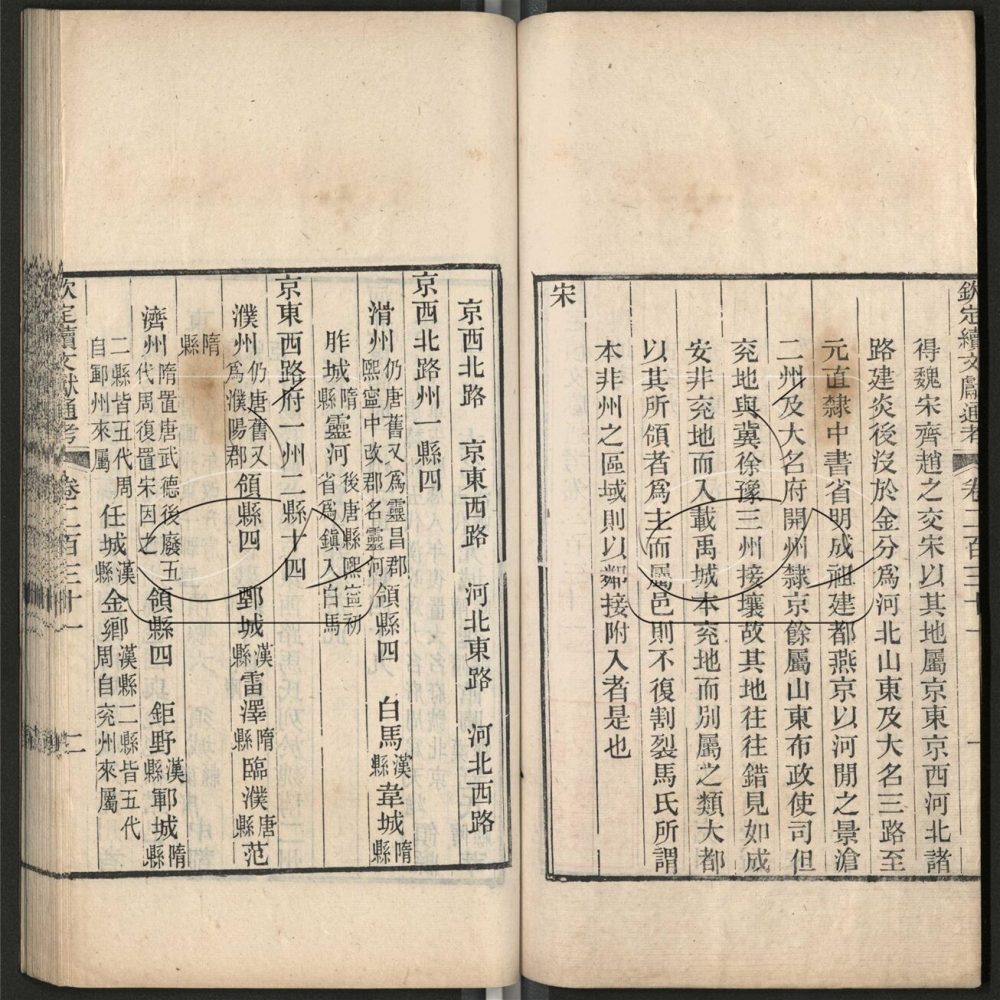 欽定續文獻通考 卷二百三十一 一
得魏宋齊趙之交宋以其地屬京東京西河北諸
路建炎後沒於金分爲河北山東及大名三路至
元直隸中書省明成祖建都燕京以河閒之景滄
二州及大名府開州隸京餘屬山東布政使司但
兗地與冀徐豫三州接壤故其地往往錯見如成
安非兗地而入載禹城本兗地而別屬之類大都
以其所領者爲主而屬邑則不復割裂馬氏所謂
本非州之區域則以鄰接附入者是也
宋
京西北路 京東西路 河北東路 河北西路
京西北路州一縣四
滑州仍唐舊又爲靈昌郡熙寧中改郡名靈河領縣四 白馬漢縣韋城隋縣
胙城隋縣靈河後唐縣熙寧初省爲鎭入白馬
京東西路府一州二縣十四
濮州仍唐舊又爲濮陽郡領縣四 鄄城漢縣雷澤隋縣臨濮唐縣范
隋縣
濟州隋置唐武德後廢五代周復置宋因之領縣四 鉅野漢縣鄆城隋縣
二縣皆五代周自鄆州來屬任城漢縣金鄉漢縣二縣皆五代周自兗州來屬
欽定續文獻通考 卷二百三十一 二